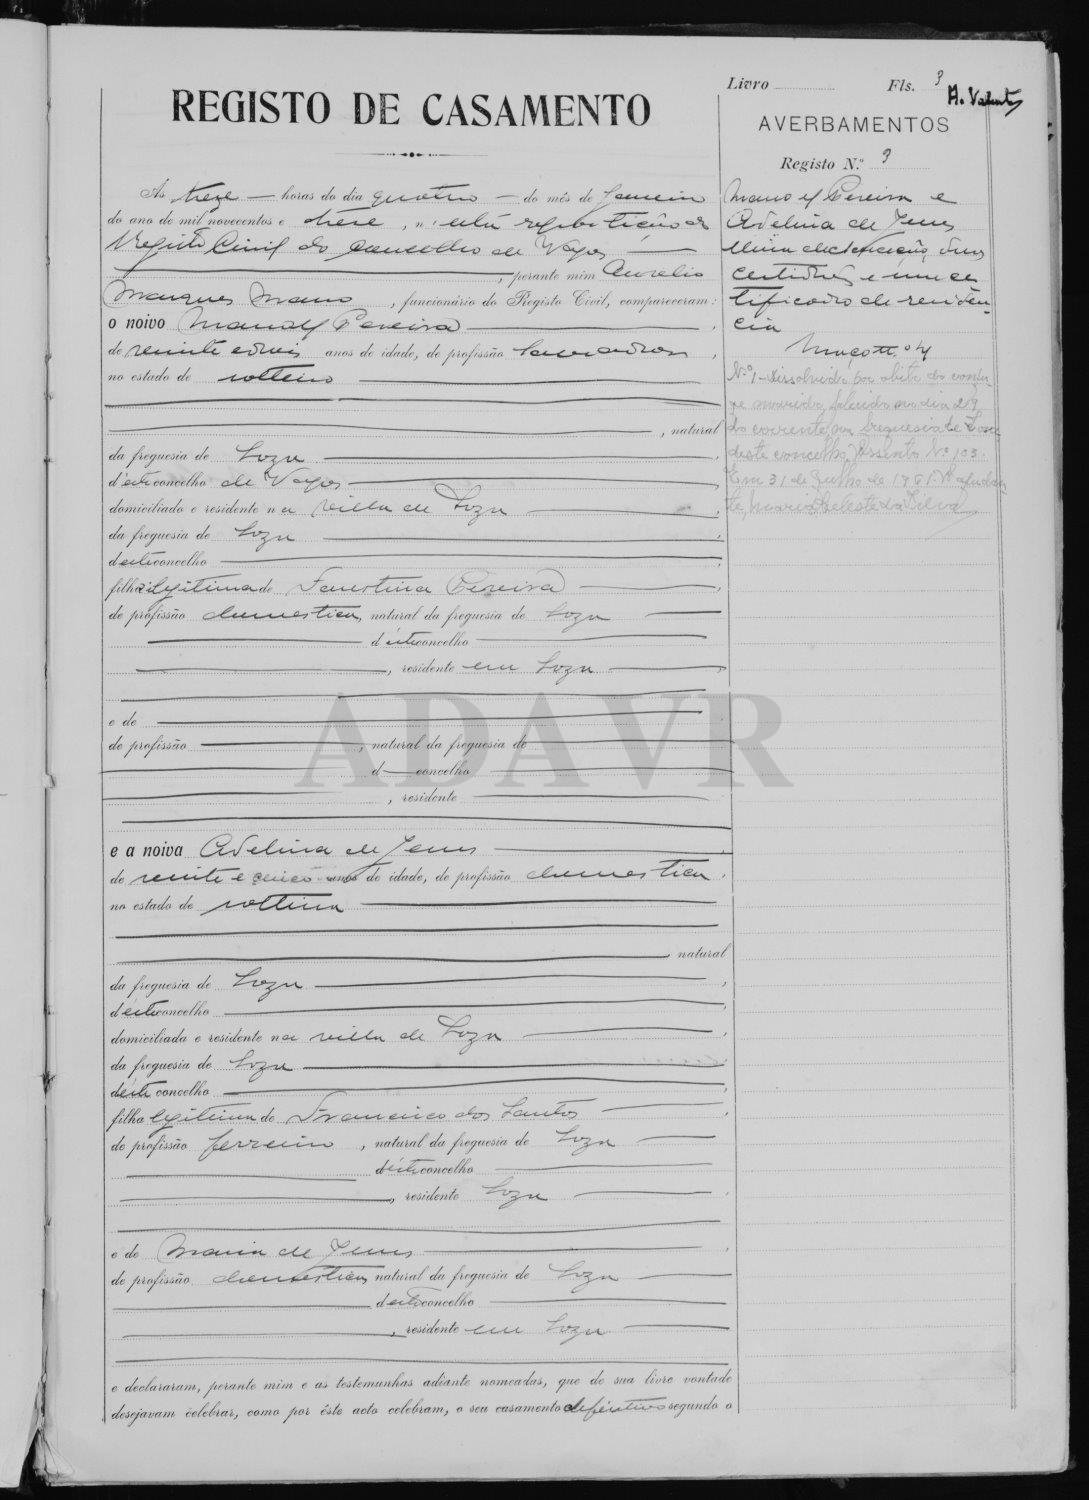 Livro Fls. 3
A. Valente
REGISTO DE CASAMENTO
AVERBAMENTOS
Registo N.º 3
Às treze horas do dia quatro do mês de Janeiro
do ano de mil novecentos e treze, n'esta repartição do
Registo Civil do concelho de Vagos
, perante mim Aurelio
Marques Mano, funcionário do Registo Civil, compareceram:
o noivo Manoel Pereira
de vinte e dois anos de idade, de profissão lavrador,
no estado de solteiro
, natural
da freguesia de Soza
d'este concelho de Vagos
domiciliado e residente na villa de Soza
da freguesia de Soza
deste concelho
filho ilegitimo de Faustina Pereira
de profissão domestica, natural da freguesia de Soza
d'este concelho
, residente em Soza
e de
de profissão , natural da freguesia de
d concelho
, residente
e a noiva Adelina de Jesus
de vinte e cinco anos de idade, de profissão domestica,
no estado de solteira
, natural
da freguesia de Soza
d'este concelho
domiciliada e residente na villa de Soza
da freguesia de Soza
deste concelho
filha legitima de Francisco dos Santos
de profissão ferreiro, natural da freguesia de Soza
deste concelho
, residente Soza
e de Maria de Jesus
de profissão domestica, natural da freguesia de Soza
deste concelho
, residente em Soza
e declararam, perante mim e as testemunhas adiante nomeadas, que de sua livre vontade
desejavam celebrar, como por êste acto celebram, o seu casamento definitivo segundo o
Manoel Pereira e
Adelina de Jesus
Uma declaração, duas
certidões e um cer-
tificado de residên-
cia
Maço nº
N.º 1 - Dissolvido por obito do conju-
ge marido, falecido no dia 29
do corrente na freguesia de Soza
deste concelho, Assento Nº 103.
Em 31 de Julho de 1961. A ajudan-
te, Maria Celeste da Silva
ADAVR